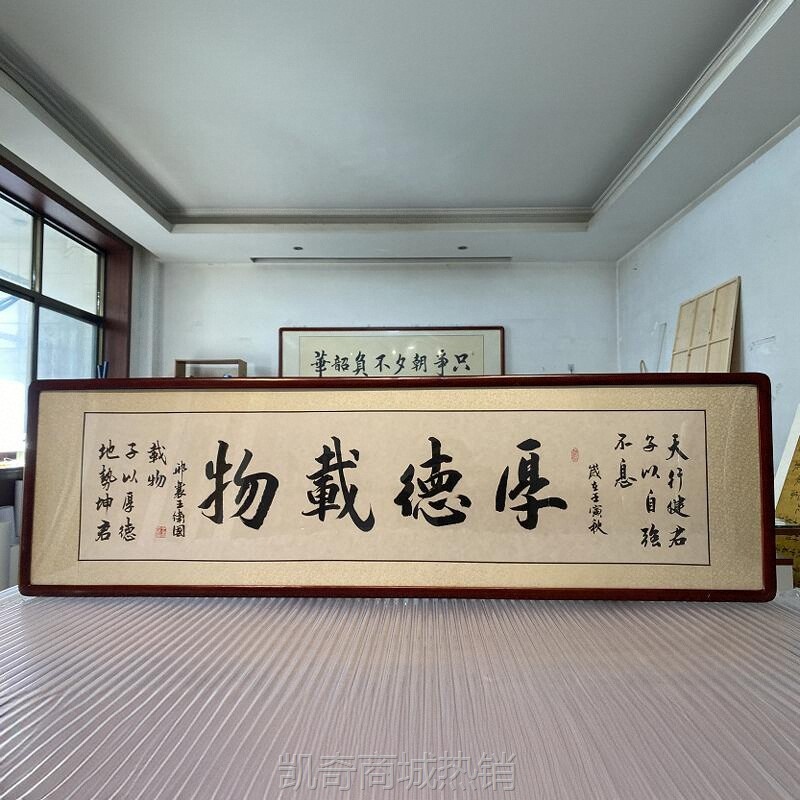 只争朝夕不負韶華
天行健君
子以自強
不息
歲在壬寅秋
厚德載物
地勢坤君
子以厚德
載物
邢襄王衛國
凯奇商城热销